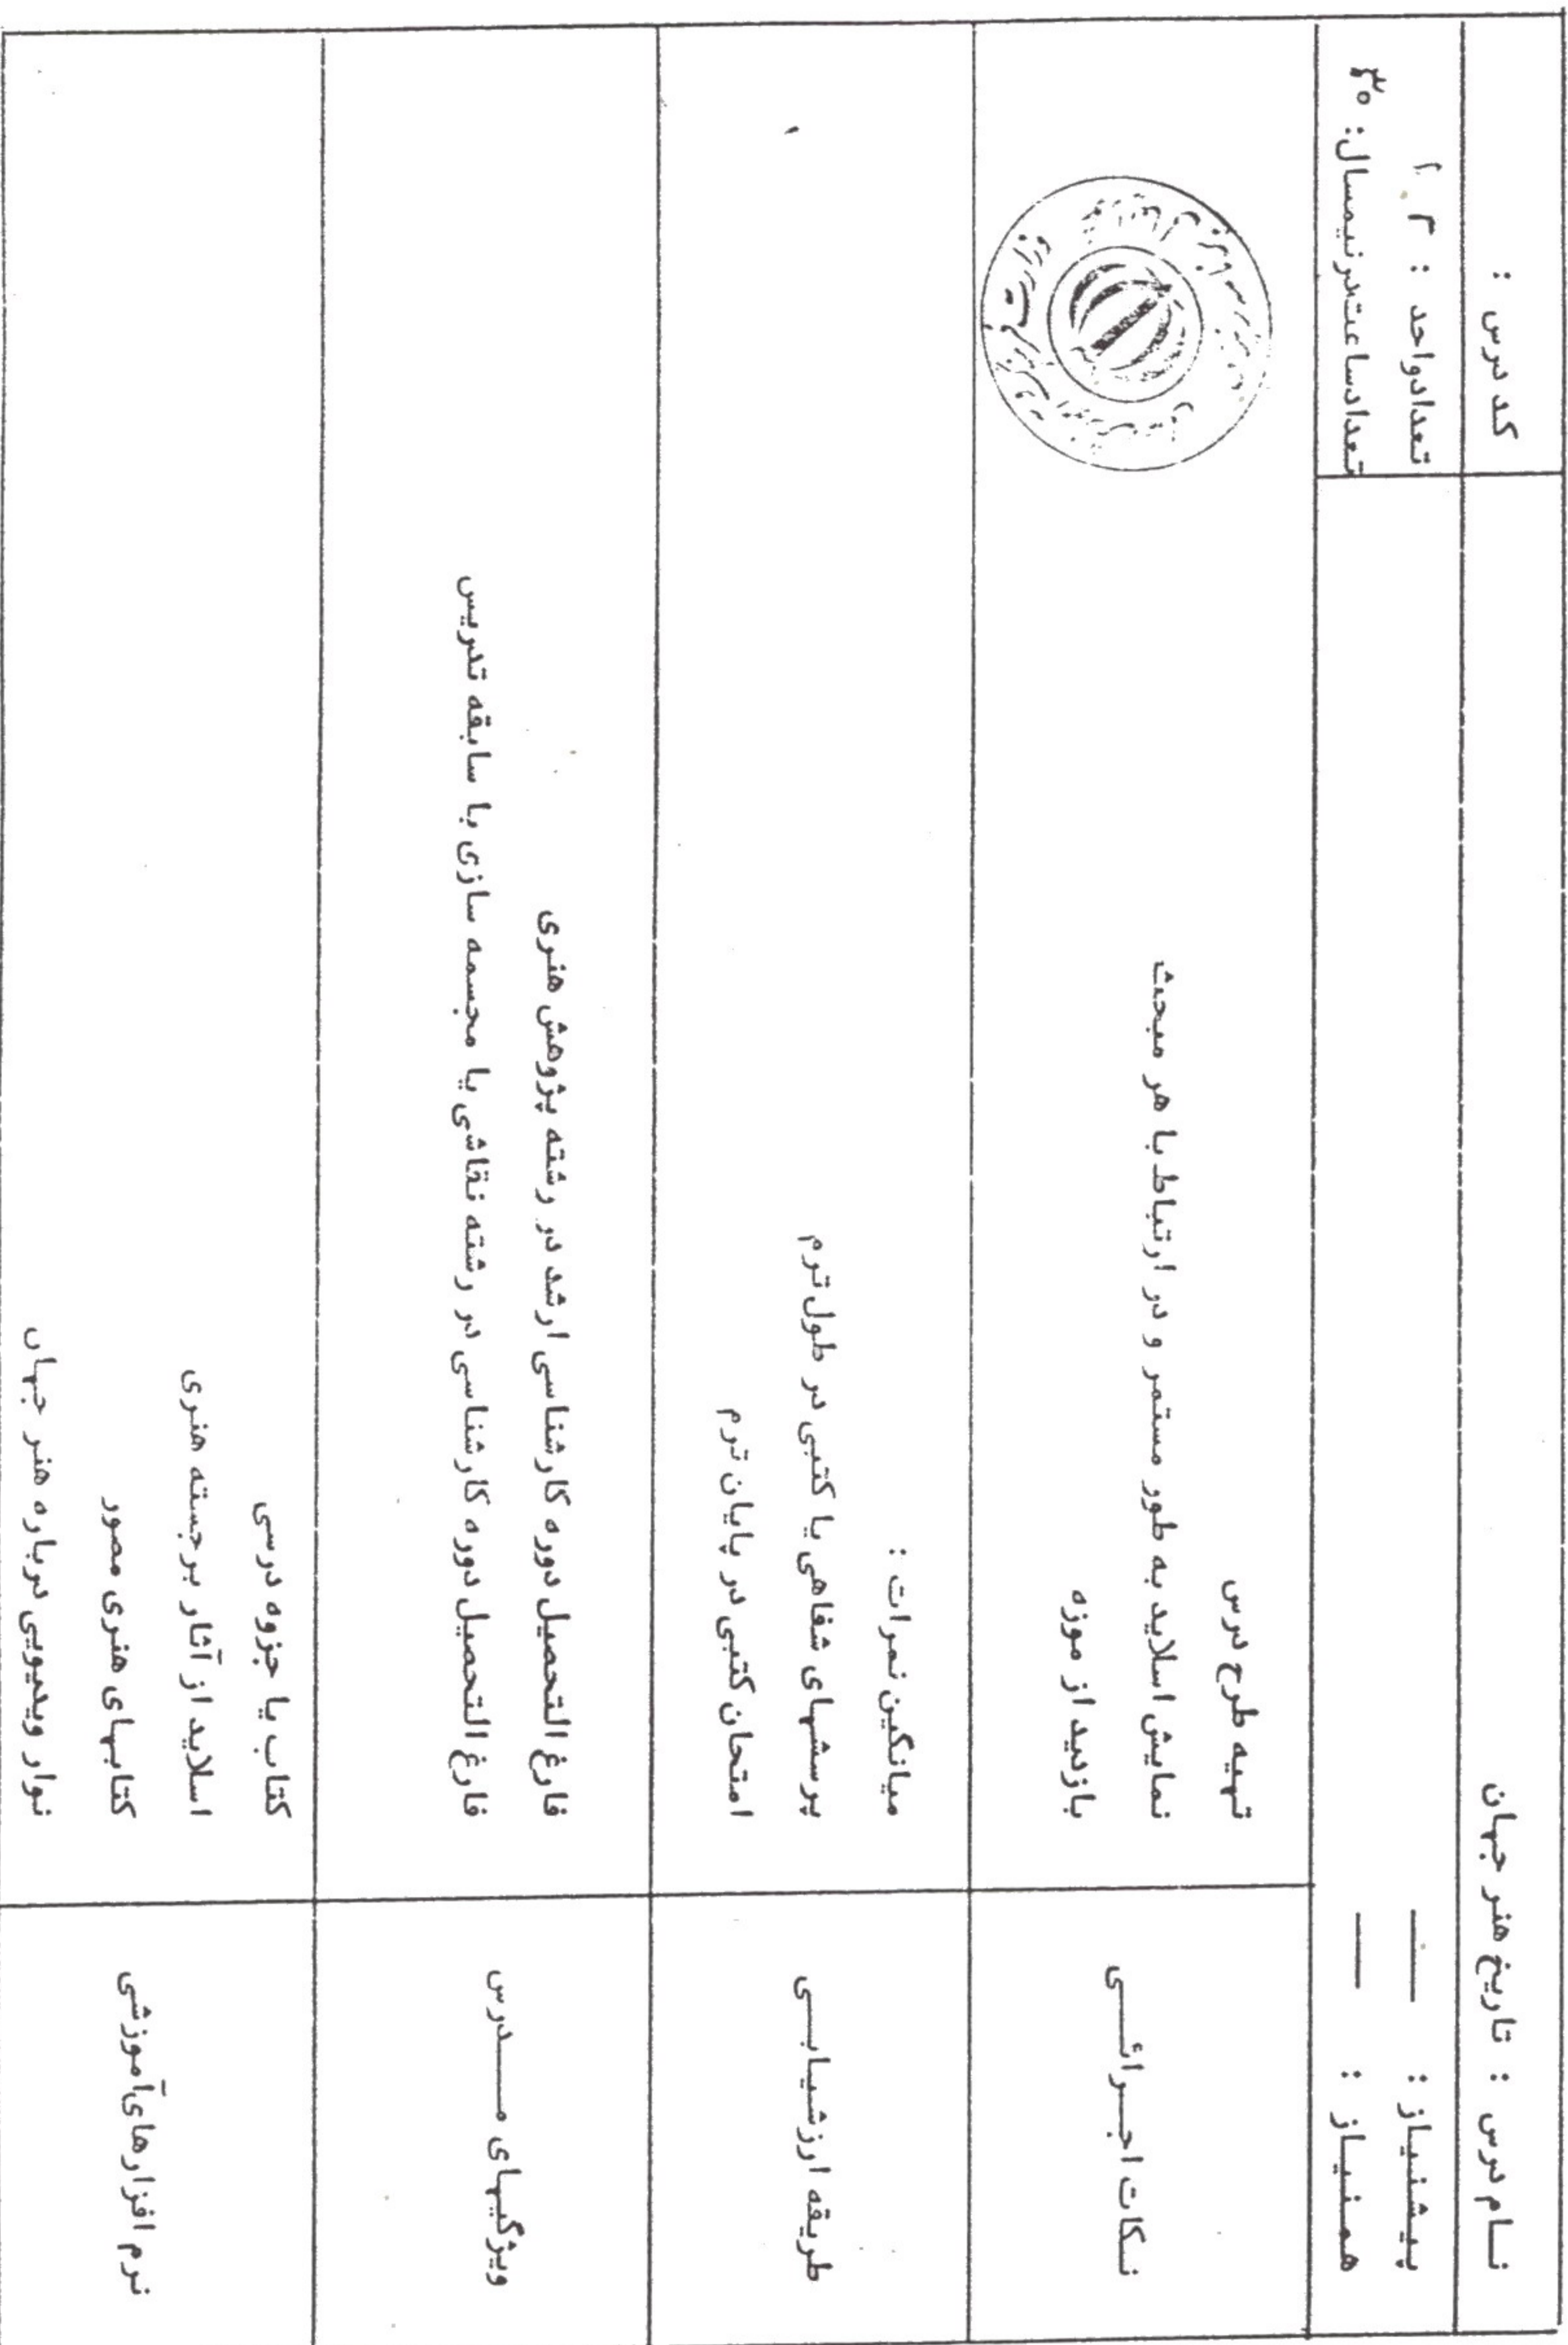 نام درس : تاریخ هنر جهان
کد درس :
پیشنیاز : —
تعداد واحد : ۲
همنیاز : —
تعداد ساعت در نیمسال : ۳۰
نکات اجرائی
تهیه طرح درس
نمایش اسلاید به طور مستمر و در ارتباط با هر مبحث
بازدید از موزه
طریقه ارزشیابی
میانگین نمرات :
پرسشهای شفاهی یا کتبی در طول ترم
امتحان کتبی در پایان ترم
ویژگیهای مدرس
فارغ التحصیل دوره کارشناسی ارشد در رشته پژوهش هنری
فارغ التحصیل دوره کارشناسی در رشته نقاشی یا مجسمه سازی با سابقه تدریس
نرم افزارهای آموزشی
کتاب یا جزوه درسی
اسلاید از آثار برجسته هنری
کتابهای هنری مصور
نوار ویدیویی درباره هنر جهان